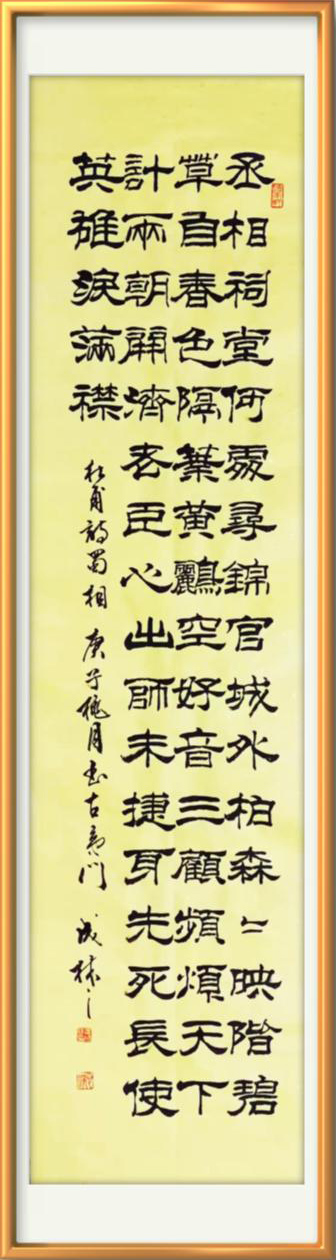 丞相祠堂何處尋錦官城外柏森〻映階碧
草自春色隔葉黃鸝空好音三顧頻煩天下
計兩朝開濟老臣心出師未捷身先死長使
英雄淚滿襟
杜甫詩蜀相 庚子穐月書古夷門 成林